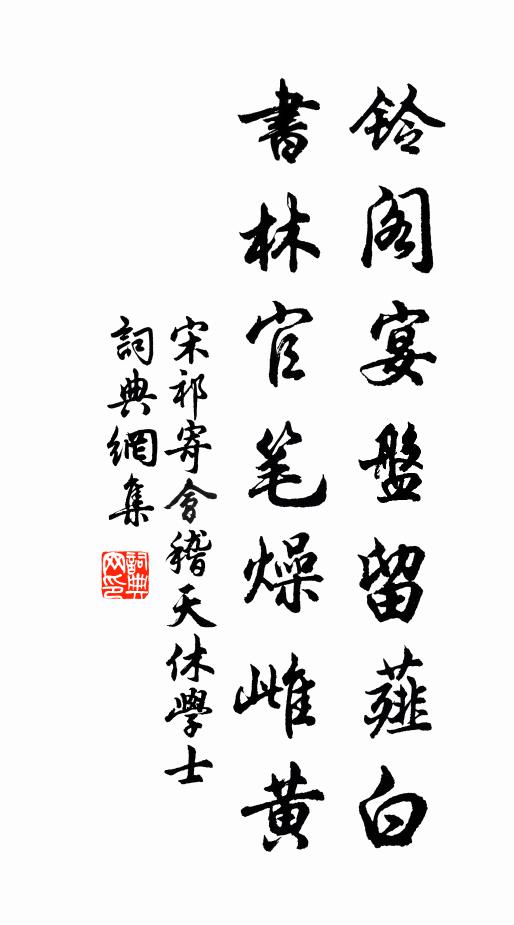 鈴阁宴盤留薤白
書林官笔燥雌黄
宋祁寄會稽天休學士
詞典網集
詞典
网印